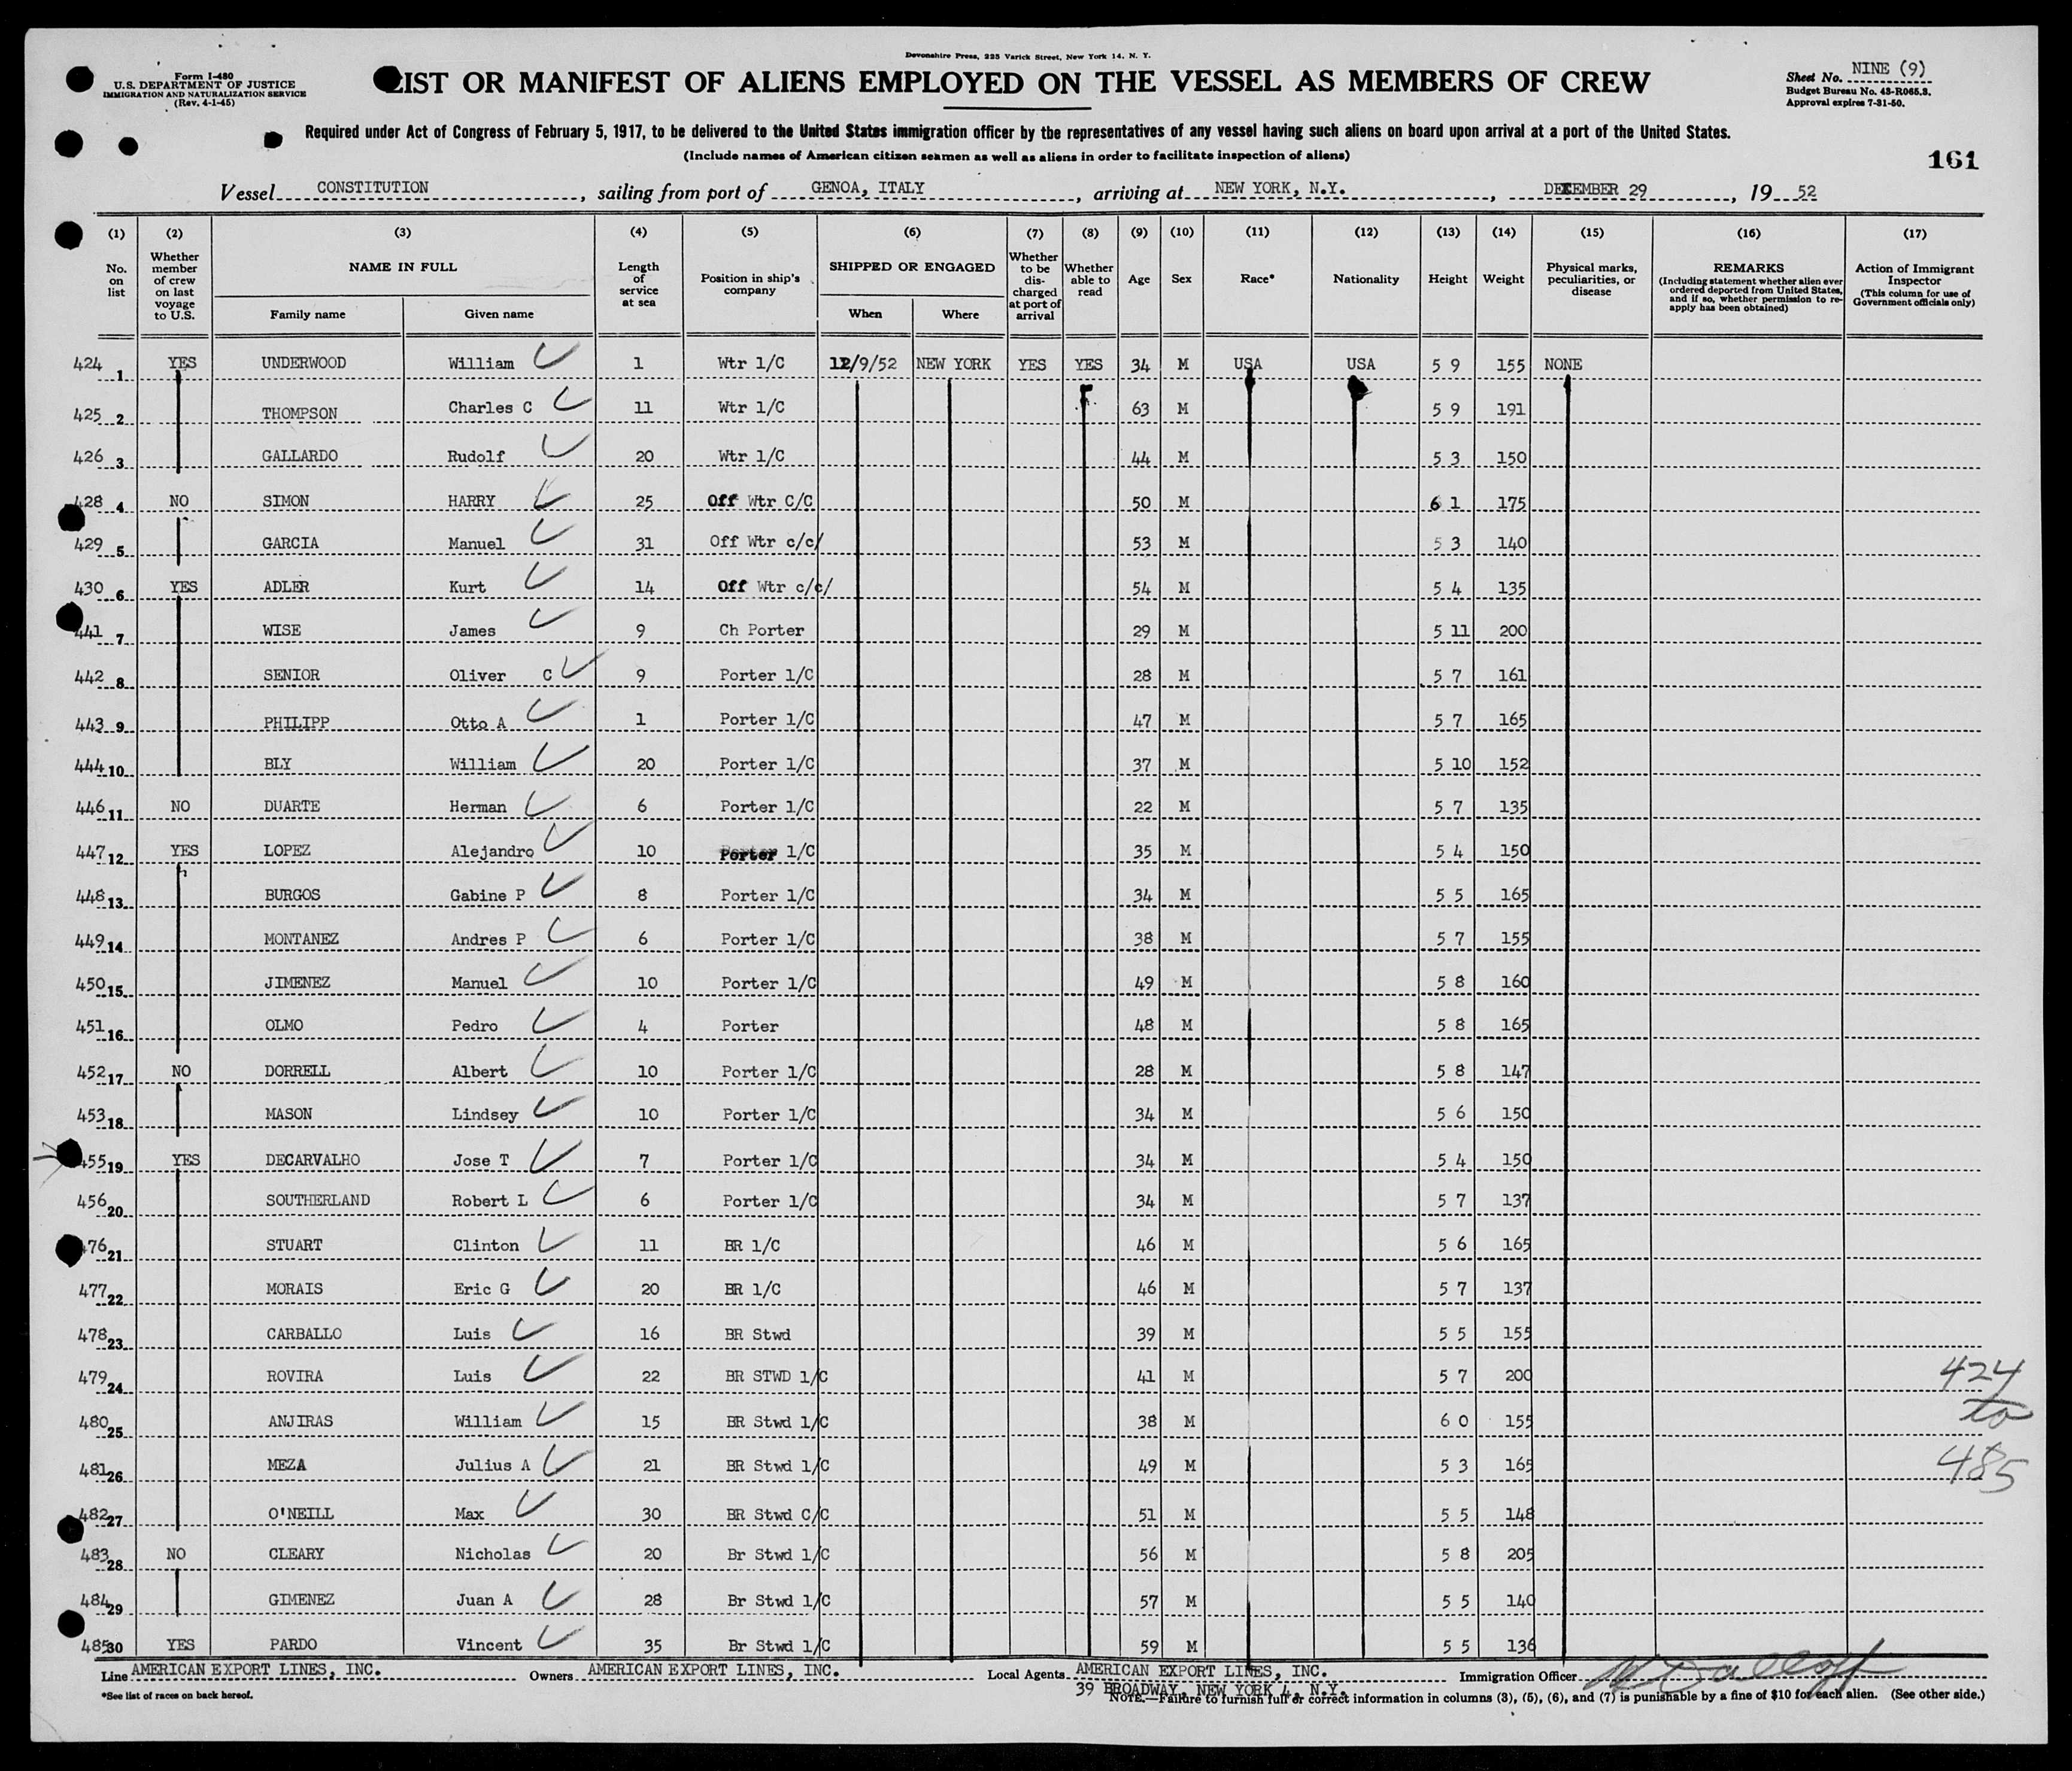 Devonshire Press, 225 Varick Street, New York 14, N. Y.
Form I-480
U.S. DEPARTMENT OF JUSTICE
IMMIGRATION AND NATURALIZATION SERVICE
(Rev. 4-1-45)
LIST OR MANIFEST OF ALIENS EMPLOYED ON THE VESSEL AS MEMBERS OF CREW
Sheet No. NINE (9)
Budget Bureau No. 43-R065.3.
Approval expires 7-31-50.
Required under Act of Congress of February 5, 1917, to be delivered to the United States immigration officer by the representatives of any vessel having such aliens on board upon arrival at a port of the United States.
(Include names of American citizen seamen as well as aliens in order to facilitate inspection of aliens)
161
Vessel CONSTITUTION, sailing from port of GENOA, ITALY, arriving at NEW YORK, N.Y., DECEMBER 29, 19 52
(1) (2) (3) (4) (5) (6) (7) (8) (9) (10) (11) (12) (13) (14) (15) (16) (17)
No. on list
Whether member of crew on last voyage to U.S.
NAME IN FULL
Family name Given name
Length of service at sea
Position in ship's company
SHIPPED OR ENGAGED
When Where
Whether to be discharged at port of arrival
Whether able to read
Age
Sex
Race*
Nationality
Height
Weight
Physical marks, peculiarities, or disease
REMARKS
(Including statement whether alien ever ordered deported from United States, and if so, whether permission to reapply has been obtained)
Action of Immigrant Inspector
(This column for use of Government officials only)
424 1 YES UNDERWOOD William 1 Wtr 1/C 12/9/52 NEW YORK YES YES 34 M USA USA 5 9 155 NONE
425 2 THOMPSON Charles C 11 Wtr 1/C 63 M 5 9 191
426 3 GALLARDO Rudolf 20 Wtr 1/C 44 M 5 3 150
428 4 NO SIMON HARRY 25 Off Wtr C/C 50 M 6 1 175
429 5 GARCIA Manuel 31 Off Wtr c/c/ 53 M 5 3 140
430 6 YES ADLER Kurt 14 Off Wtr c/c/ 54 M 5 4 135
441 7 WISE James 9 Ch Porter 29 M 5 11 200
442 8 SENIOR Oliver C 9 Porter 1/C 28 M 5 7 161
443 9 PHILIPP Otto A 1 Porter 1/C 47 M 5 7 165
444 10 BLY William 20 Porter 1/C 37 M 5 10 152
446 11 NO DUARTE Herman 6 Porter 1/C 22 M 5 7 135
447 12 YES LOPEZ Alejandro 10 Porter 1/C 35 M 5 4 150
448 13 BURGOS Gabine P 8 Porter 1/C 34 M 5 5 165
449 14 MONTANEZ Andres P 6 Porter 1/C 38 M 5 7 155
450 15 JIMENEZ Manuel 10 Porter 1/C 49 M 5 8 160
451 16 OLMO Pedro 4 Porter 48 M 5 8 165
452 17 NO DORRELL Albert 10 Porter 1/C 28 M 5 8 147
453 18 MASON Lindsey 10 Porter 1/C 34 M 5 6 150
455 19 YES DECARVALHO Jose T 7 Porter 1/C 34 M 5 4 150
456 20 SOUTHERLAND Robert L 6 Porter 1/C 34 M 5 7 137
476 21 STUART Clinton 11 BR 1/C 46 M 5 6 165
477 22 MORAIS Eric G 20 BR 1/C 46 M 5 7 137
478 23 CARBALLO Luis 16 BR Stwd 39 M 5 5 155
479 24 ROVIRA Luis 22 BR STWD 1/C 41 M 5 7 200
480 25 ANJIRAS William 15 BR Stwd 1/C 38 M 6 0 155
481 26 MEZA Julius A 21 BR Stwd 1/C 49 M 5 3 165
482 27 O'NEILL Max 30 BR Stwd C/C 51 M 5 5 148
483 28 NO CLEARY Nicholas 20 Br Stwd 1/C 56 M 5 8 205
484 29 GIMENEZ Juan A 28 Br Stwd 1/C 57 M 5 5 140
485 30 YES PARDO Vincent 35 Br Stwd 1/C 59 M 5 5 136
424
to
485
Line AMERICAN EXPORT LINES, INC. Owners AMERICAN EXPORT LINES, INC. Local Agents AMERICAN EXPORT LINES, INC. Immigration Officer
39 BROADWAY, NEW YORK 4, N.Y.
*See list of races on back hereof.
NOTE.—Failure to furnish full or correct information in columns (3), (5), (6), and (7) is punishable by a fine of $10 for each alien. (See other side.)